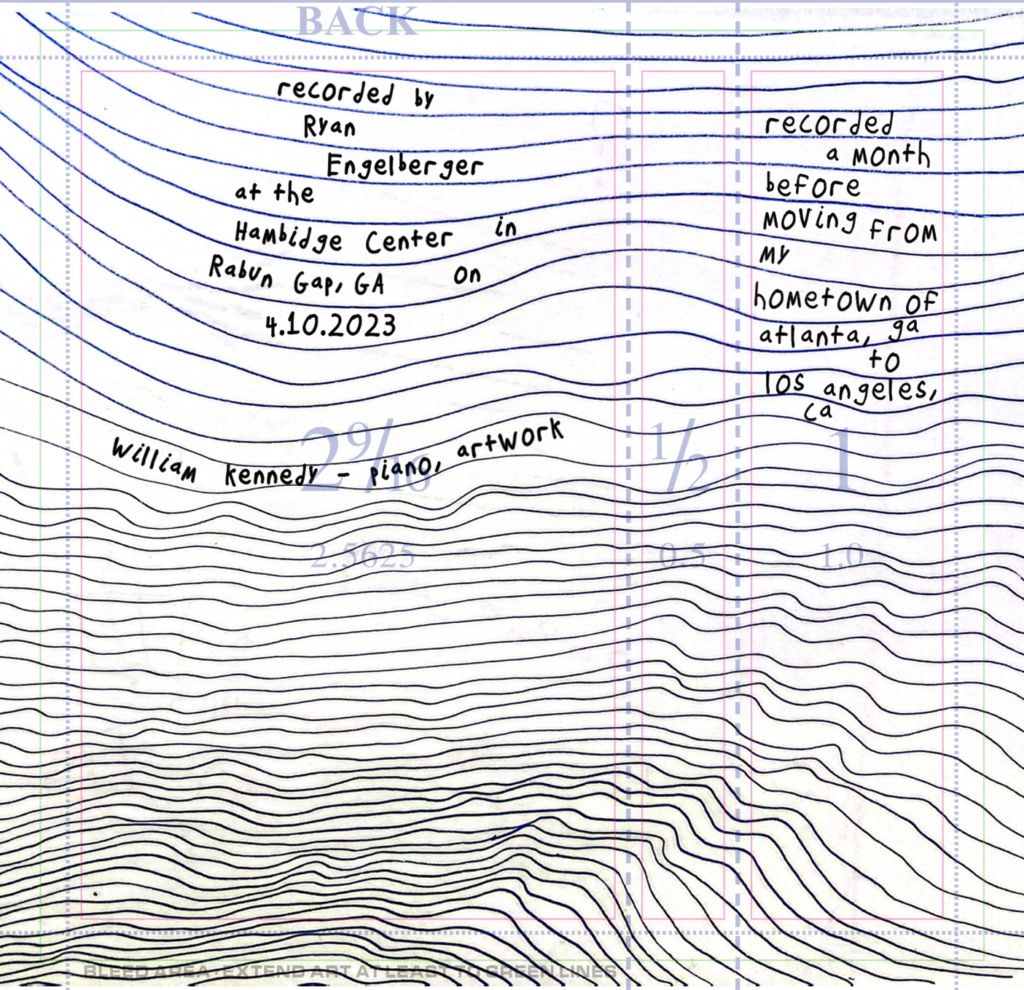 BACK
recorded by
Ryan
Engelberger
at the
Hambidge Center in
Rabun Gap, GA on
4.10.2023
recorded
a month
before
moving from
my
hometown of
atlanta, ga
to
los angeles,
ca
William Kennedy - piano, artwork
2 9/16
1/2
1
2.5625
0.5
1.0
BLEED AREA - EXTEND ART AT LEAST TO GREEN LINES